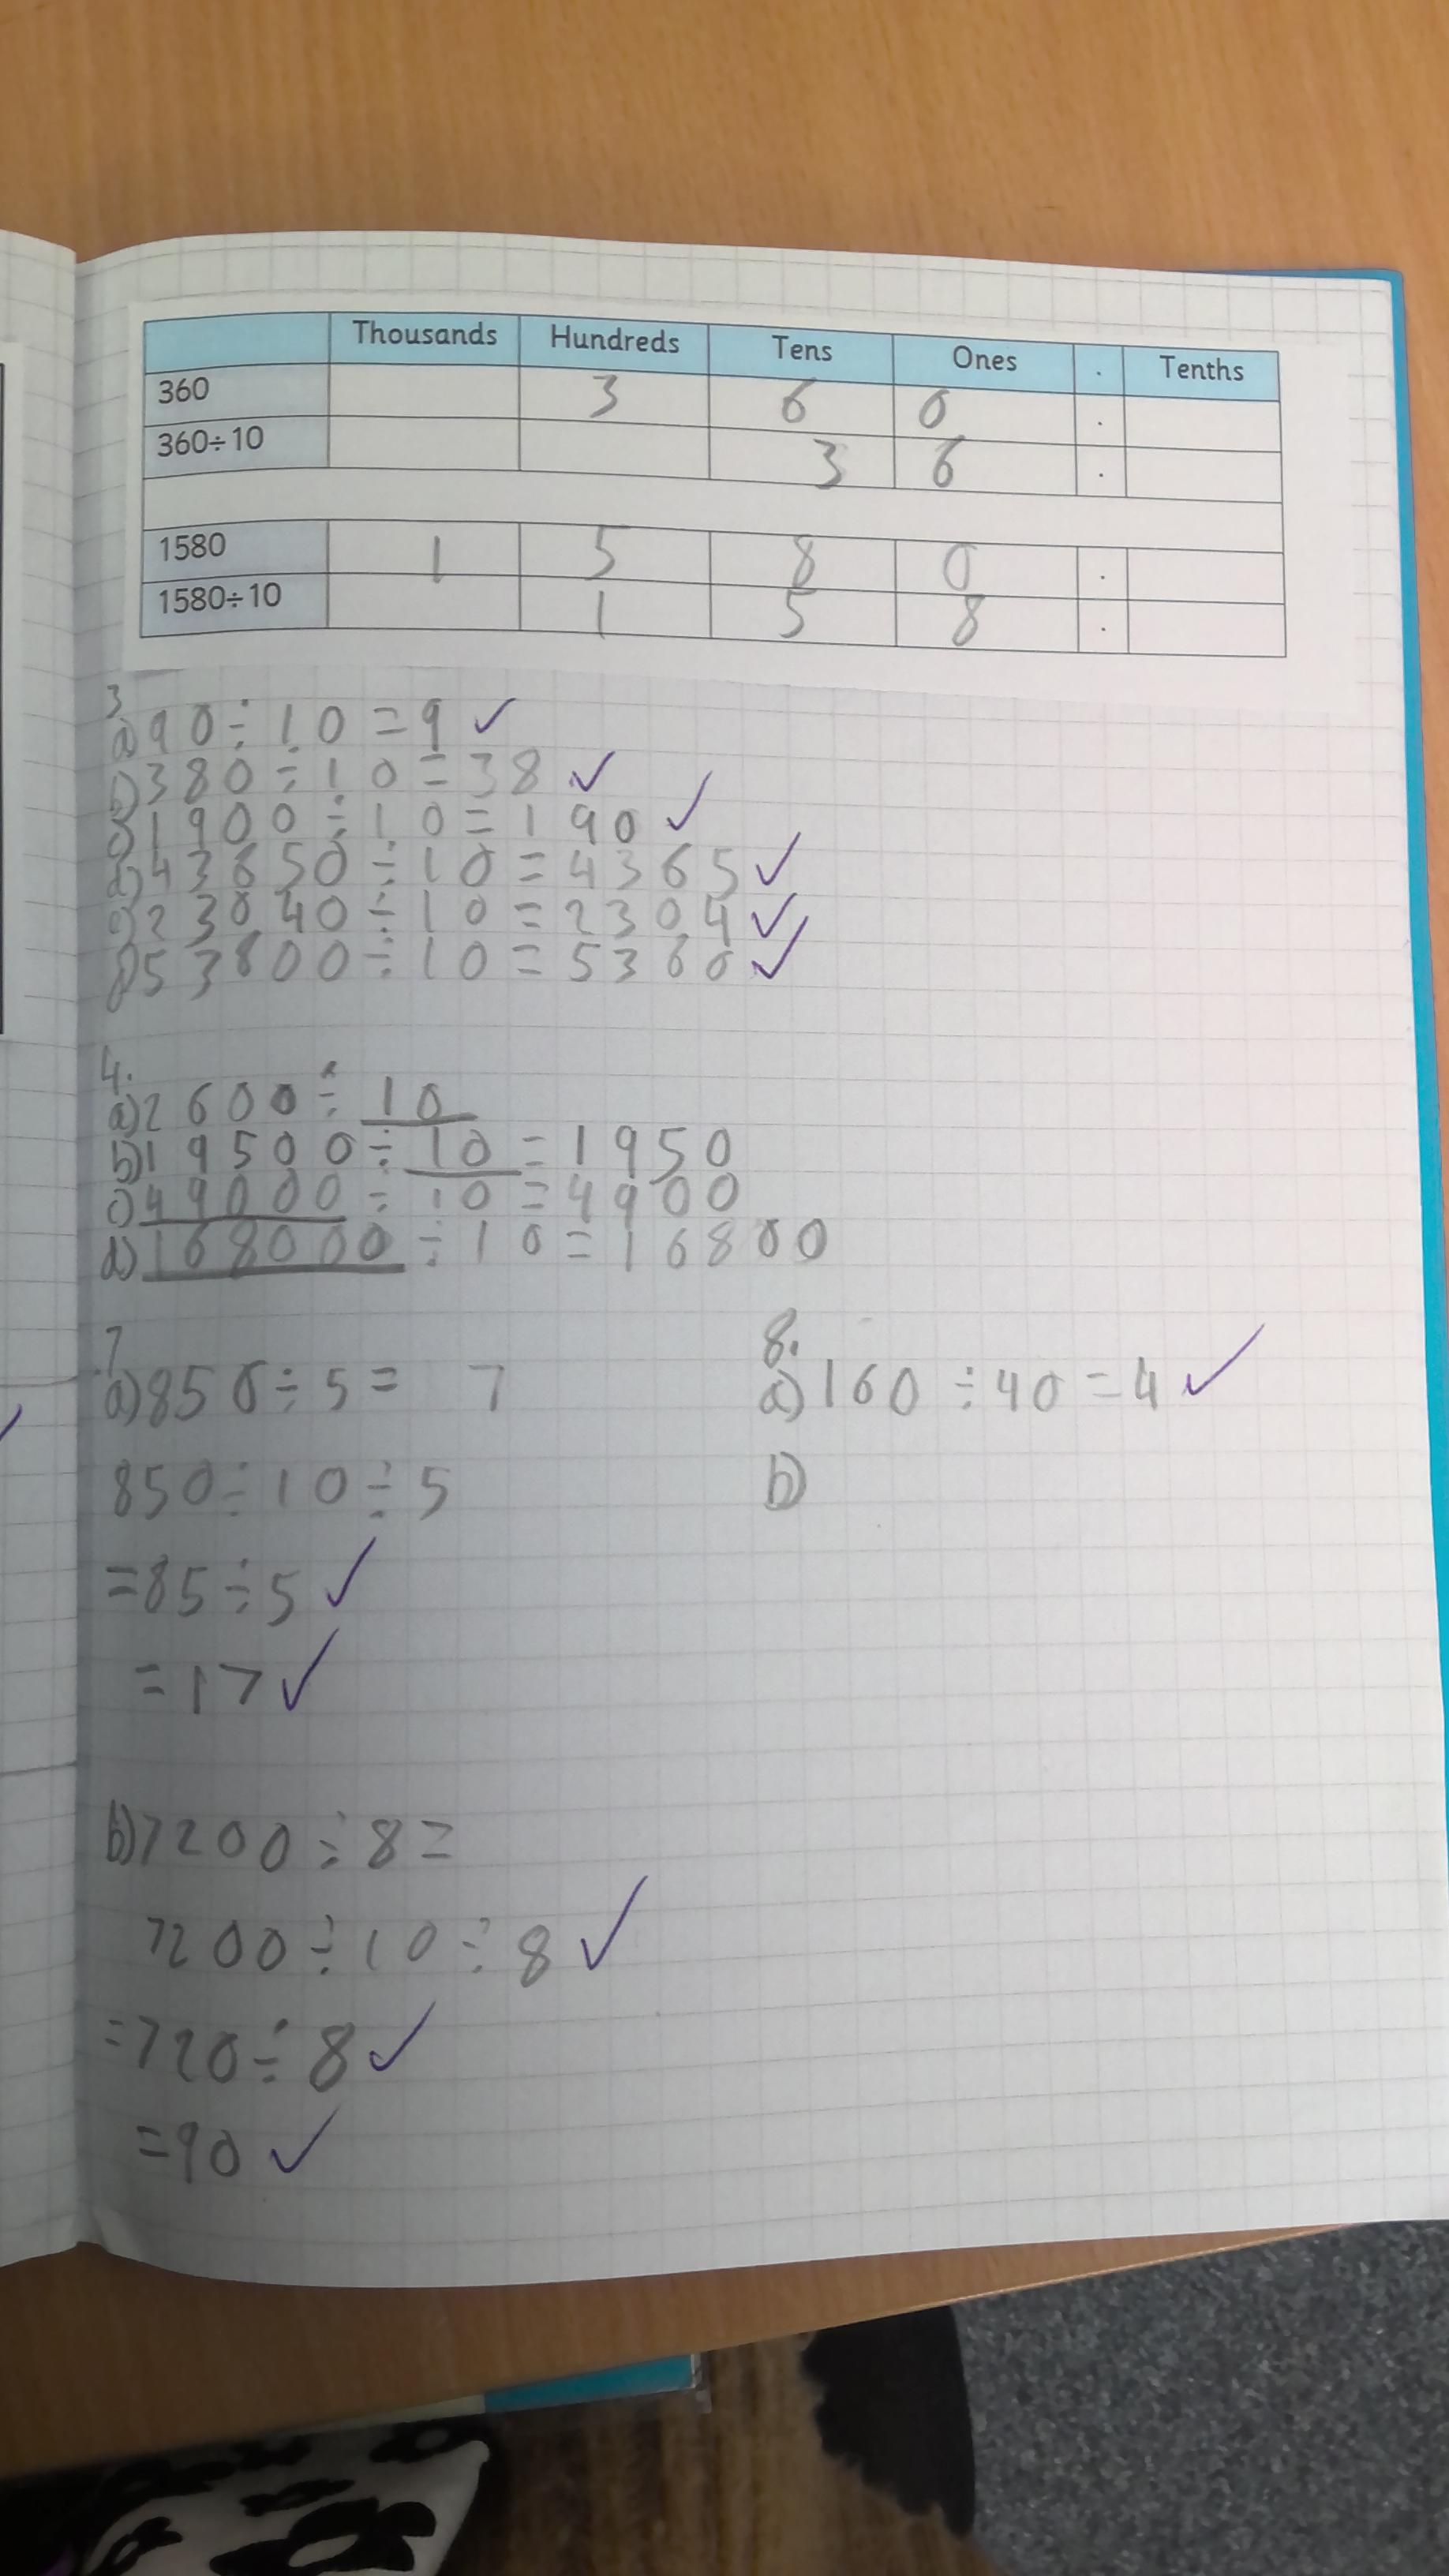 Thousands Hundreds Tens Ones . Tenths
360 3 6 0 .
360÷10 3 6 .
1580 1 5 8 0 .
1580÷10 1 5 8 .
3
a) 90÷10=9 ✓
b) 380÷10=38 ✓
c) 1900÷10=190 ✓
d) 43650÷10=4365 ✓
e) 23040÷10=2304 ✓
f) 53600÷10=5360 ✓
4.
a) 2600÷10
b) 19500÷10=1950
c) 49000÷10=4900
d) 168000÷10=16800
7
a) 850÷5= 7
850÷10÷5
=85÷5 ✓
=17 ✓
b) 7200÷8=
7200÷10÷8 ✓
=720÷8 ✓
=90 ✓
8.
a) 160÷40=4 ✓
b)